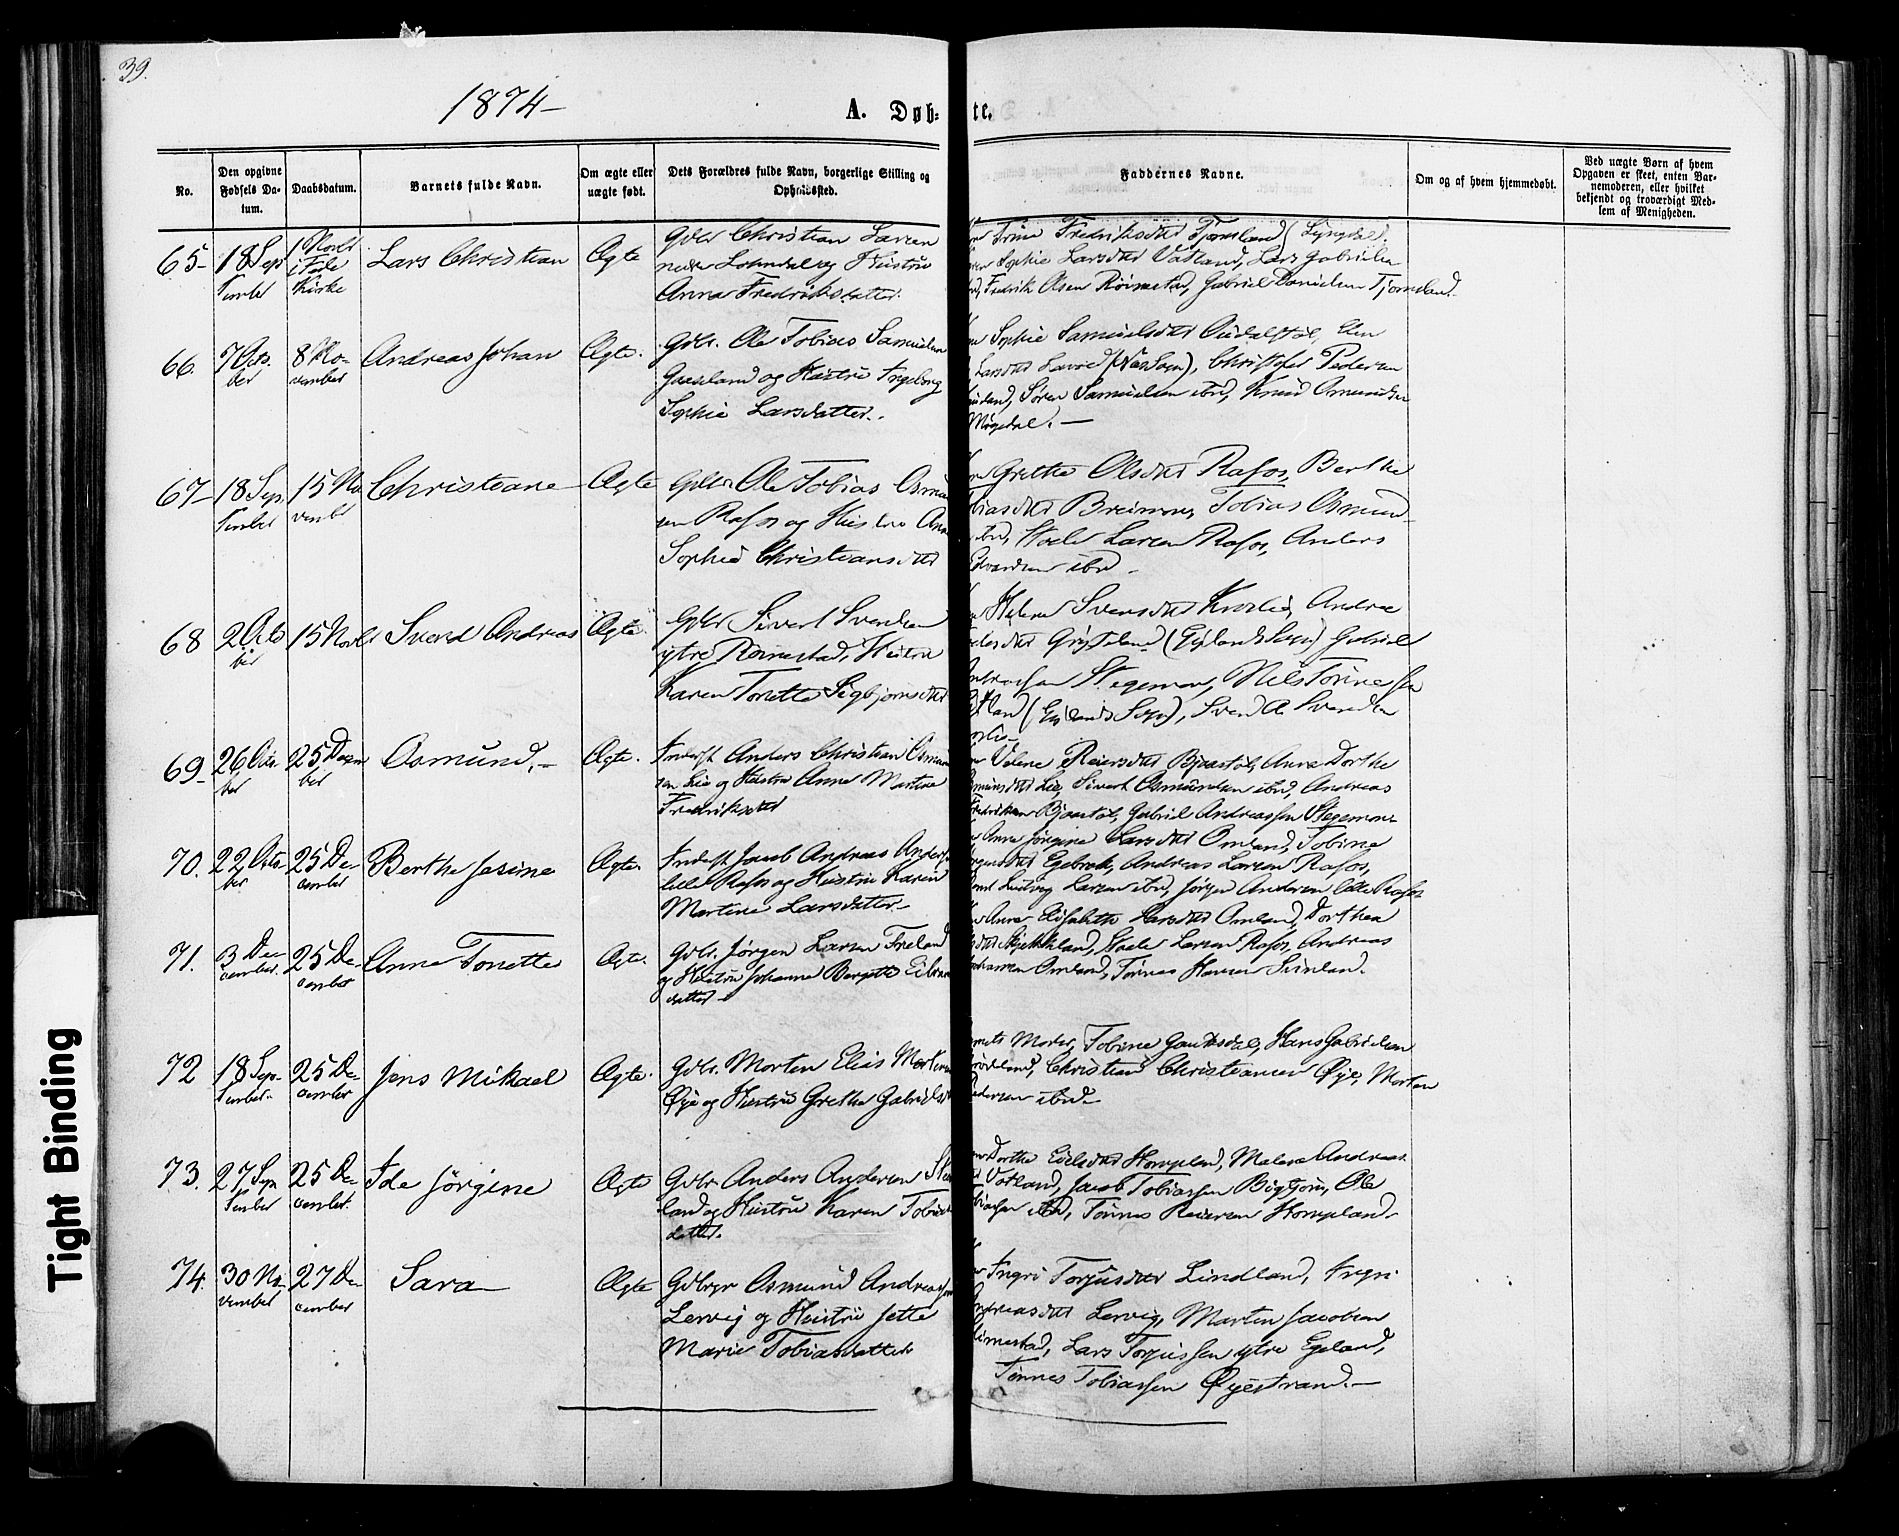 39.
1874-
A. Døb-
te.
No.
Den opgivne
Fødsels Da-
tum.
Daabsdatum.
Barnets fulde Navn.
Om ægte eller
uægte født.
Dets Forældres fulde Navn, borgerlige Stilling og
Opholdssted.
Faddernes Navne.
Om og af hvem hjemmedøbt.
Ved uægte Børn af hvem
Opgaven er skeet, enten Bar-
nemoderen, eller hvilket
bekjendt og troværdigt Med-
lem af Menigheden.
65- 18 Sep
tember
1 Novbr
i Fede
Kirke
Lars Christian
Ægte
Gdbr Christian Larsen
og Hustru
Anna Fredriksdatter.
Trine Fredriksdtr Tjomsland (Lyngdal).
Sophie Larsdtr Vatland, Lars Gabrielsen
Fredrik Olsen Röinestad, Gabriel Danielsen Tjomsland.
66. 7 Octo
ber
8 No-
vember
Andreas Johan
Ægte.
Gdbr. Ole Tobias Samuelsen
Gaaseland og Hustru Ingeborg
Sophie Larsdatter.
Sophie Samuelsdtr Oudalstöl, Elen
Larsdtr (Næs Sogn), Christopher Pedersen
Sören Samuelsen ibid, Knud Osmundsen
Mögedal.-
67- 18 Sep
tember
15 No
vember
Christiane
Ægte
Gdbr Ole Tobias Osmund
sen Rafos og Hustru Anne
Sophie Christiansdtr
Grethe Olsdtr Rafos, Berthe
Tobiasdtr Breimon, Tobias Osmund
ibid, Staale Larsen Rafos, Anders
Edvardsen ibid.
68 2 Octo
ber
15 Novbr
Svend Andreas
Ægte.
Gdbr Sivert Svendsen
ytre Röinestad, Hustru
Karen Tonette Sigbjörnsdtr
Helene Svensdtr Andrea
(Gylands Sogn) Gabriel
Andreassen Stegemon, Nils Tönnesen
(Gylands Sogn), Svend A. Svendsen
69- 26 Octo
ber
25 Decem
ber
Osmund.-
Ægte.
Inderst Anders Christian Osmund
sen Lie og Hustru Anne Martine
Fredriksdtr
Velene Reiersdtr Bjaastöl, Anne Dorthe
Osmundsdtr Lie, Sivert Osmundsen ibid, Andreas
Fredriksen Bjaastöl, Gabriel Andreassen Stegemon.
70. 22 Octo
ber
25 De-
cember
Berthe Josine
Ægte.
Inderst Jacob Andreas Anders
lille Rafos og Hustru Karen
Martine Larsdatter.-
Anne Jörgine Larsdtr Omland, Tobine
Egebrok, Andreas Larsen Rafos,
Bernt Ludvig Larsen ibid, Jörgen Andersen lille Rafos
71. 3 De-
cember.
25 De-
cember
Anne Tonette
Ægte.
Gdbr. Jörgen Larsen Fröland
og Hustru Johanne Bergitte
datter -
Anne Elisabeth Larsdtr Omland, Dorthea
Staale Larsen Rafos, Andreas
Johansen Omland, Tönnes Hansen Sunland.
72 18 Sep-
tember.
25 De-
cember
Jens Mikael
Ægte.
Gdbr. Morten Elias Mortensen
Øye og Hustru Grethe Gabrielsdtr
Barnets Moder, Tobine Gauksdal, Hans Gabrielsen
Frödeland, Christian Christiansen Øye, Morten
Pedersen ibid.-
73. 27 Sep
tember
25 De-
cember.
Ida Jörgine
Ægte
Gdbr Anders Andersen
land og Hustru Karen Tobias
datter.
Dorthe Eilesdtr Hompland, Malene Andreas
Votland, Jacob Tobiassen Bigtjön, Ole
Tobiassen ibid, Tönnes Reiersen Hompland.
74. 30 No-
vember
27 De-
cember
Sara
Ægte
Gdbgr Osmund Andreassen
Lervig og Hustru Jette
Marie Tobiasdatter
Ingri Torjusdtr Lindland, Ingri
Andreasdtr Lervig, Martin Jacobsen
Rimestad, Lars Torjussen ytre Egeland,
Tönnes Tobiassen Øyestrand.-
Tight Binding